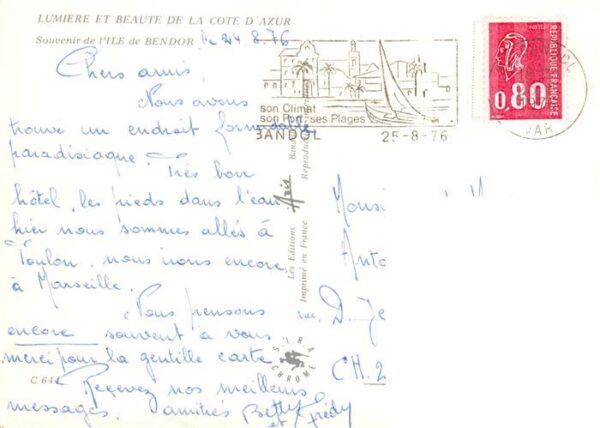 LUMIERE ET BEAUTE DE LA COTE D'AZUR
Souvenir de l'ILE de BENDOR
le 24.8.76
Chers amis,
Nous avons
trouvé un endroit formidable
paradisiaque. Très bon
hôtel, les pieds dans l'eau
hier nous sommes allés à
Toulon, nous irons encore
à Marseille.
Nous pensons
encore souvent à vous
merci pour la gentille carte.
Recevez nos meilleurs
messages. amitiés Betty
et Frédy
C 644
son Climat
son Port, ses Plages
BANDOL
25-8-76
POSTES
REPUBLIQUE FRANÇAISE
0,80
VAR
Les Editions
Imprimé en France
SURA
CHROME
Monsi
Anto
rue, D. Je
CH. 2